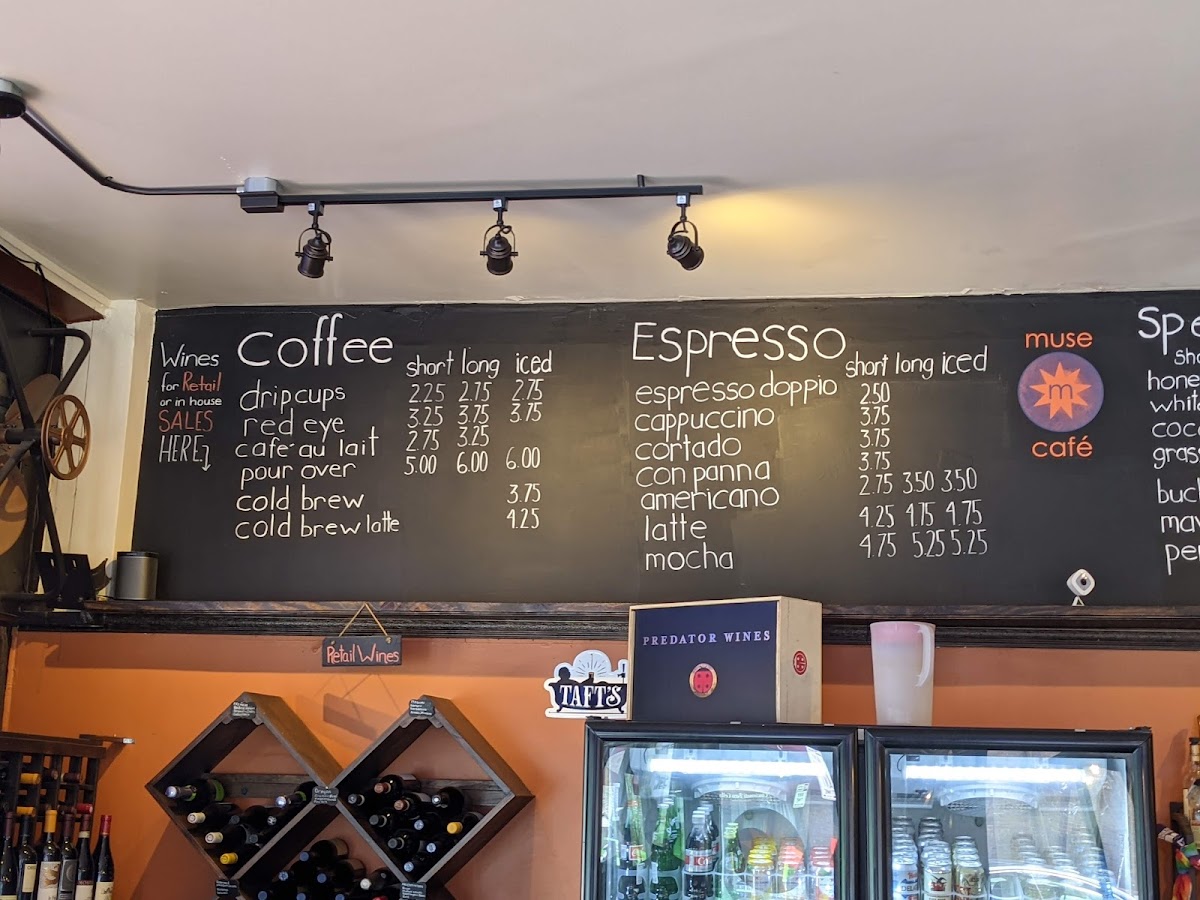 Wines
for Retail
or in house
SALES
HERE
Coffee
short long iced
drip cups 2.25 2.75 2.75
red eye 3.25 3.75 3.75
café au lait 2.75 3.25
pour over 5.00 6.00 6.00
cold brew 3.75
cold brew latte 4.25
Espresso
short long iced
espresso doppio 2.50
cappuccino 3.75
cortado 3.75
con panna 3.75
americano 2.75 3.50 3.50
latte 4.25 4.75 4.75
mocha 4.75 5.25 5.25
muse
m
café
Spe
sho
hone
whit
coco
grass
buck
mav
per
Retail Wines
TAFT'S
PREDATOR WINES